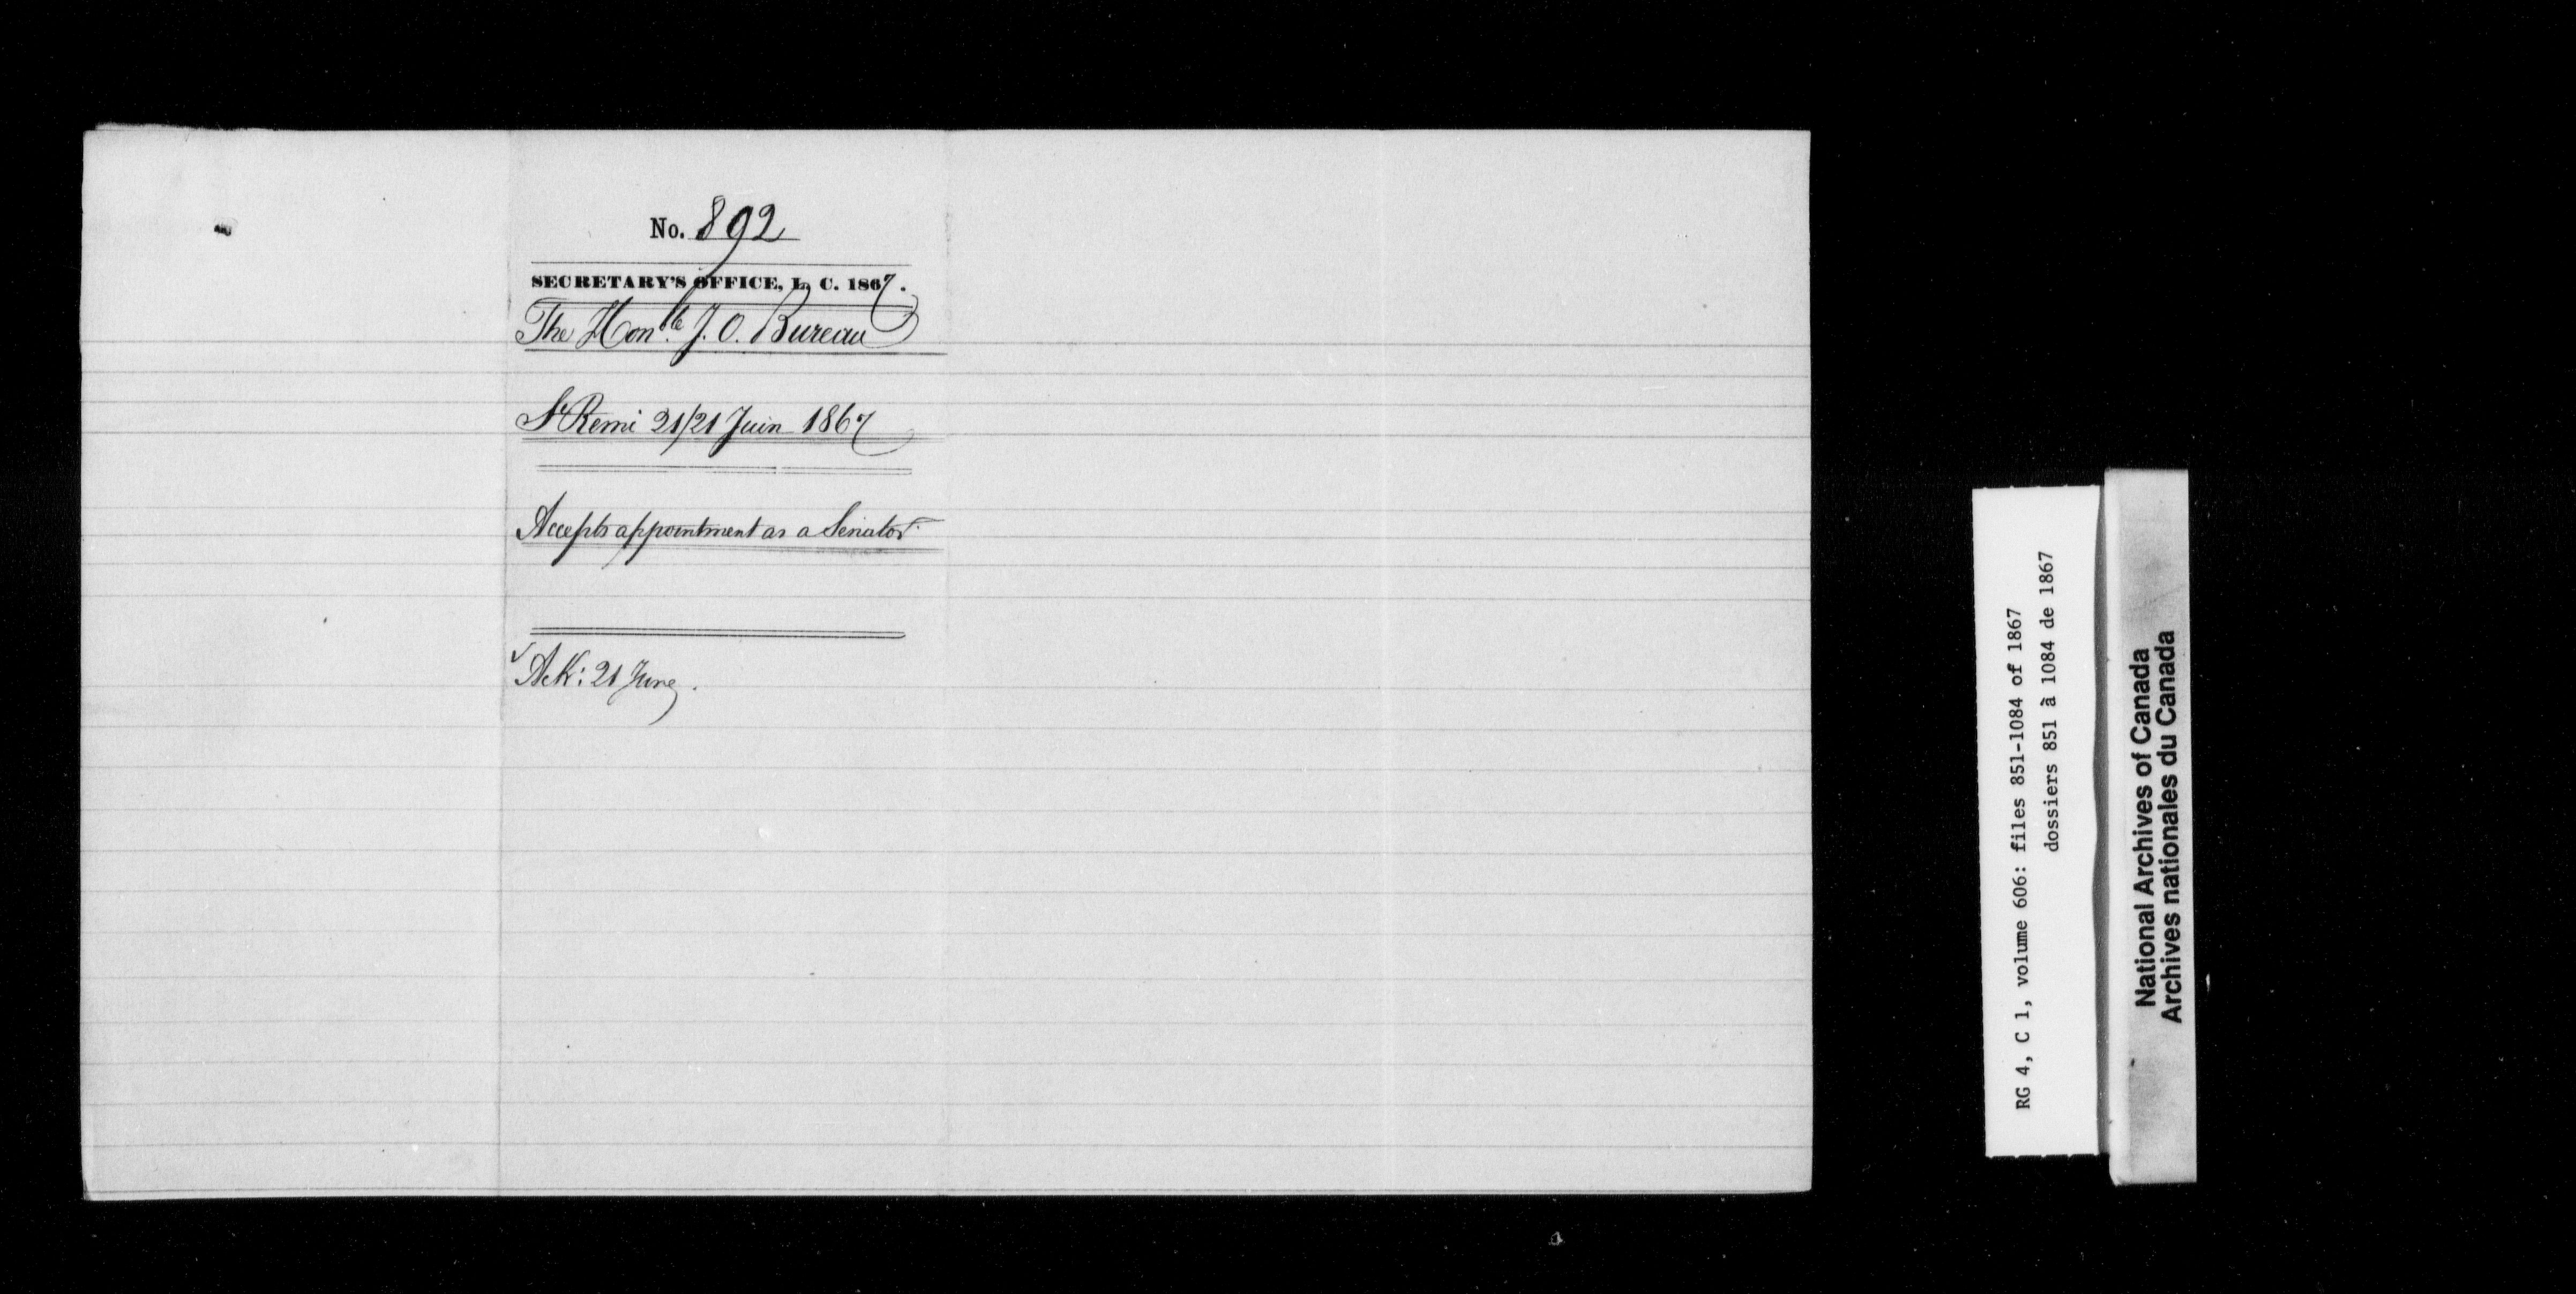 No. 892
SECRETARY'S OFFICE, L. C. 1867.
The Honble. J. O. Bureau
St Remi 21/21 Juin 1867
Accepts appointment as a Senator
✓ Ack: 21 June.
RG 4, C 1, volume 606: files 851-1084 of 1867
dossiers 851 à 1084 de 1867
National Archives of Canada
Archives nationales du Canada